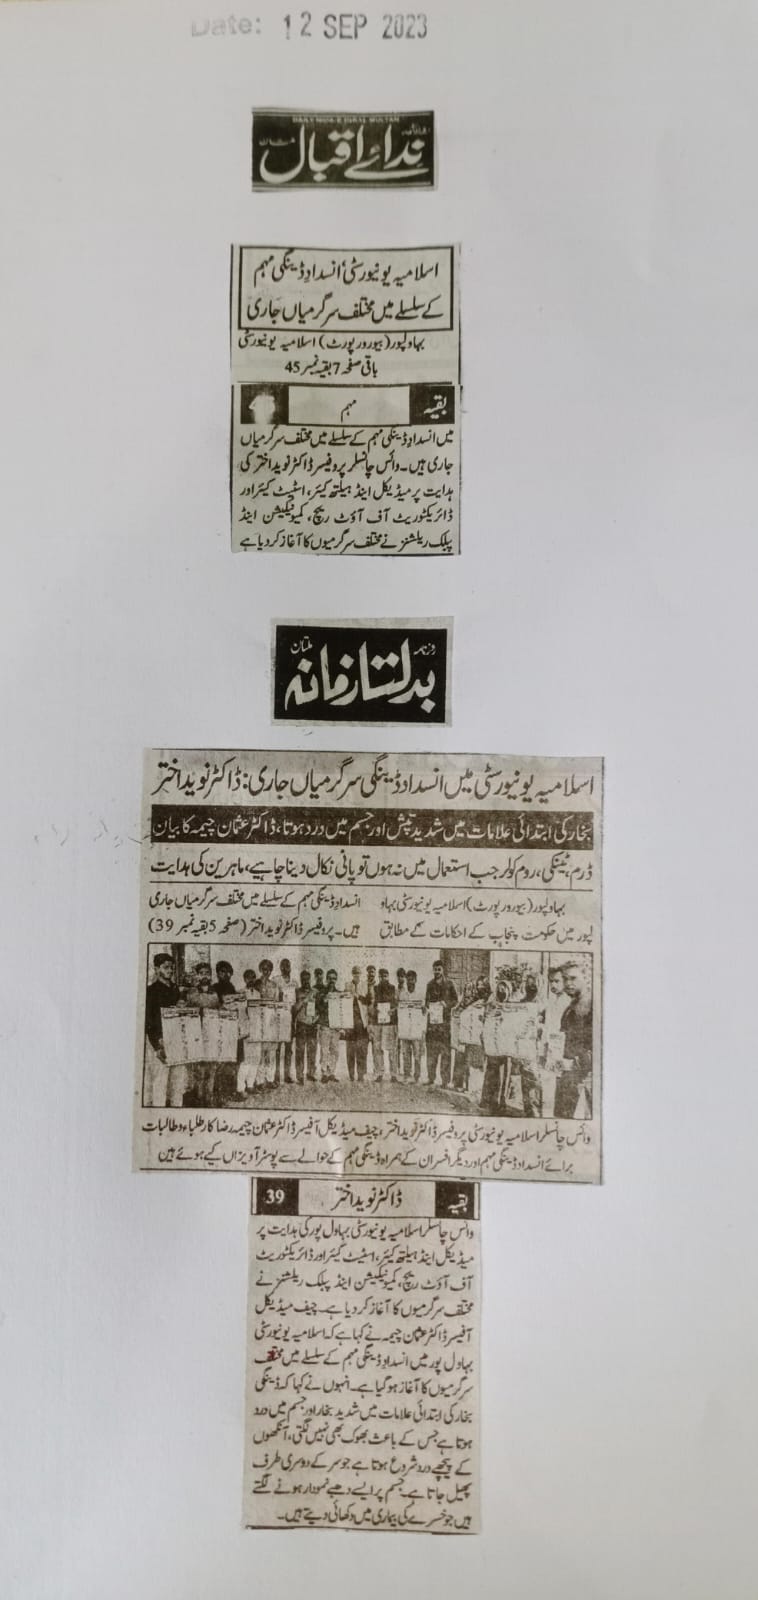 Date: 12 SEP 2023
DAILY NIDA-E-IQBAL MULTAN
روزنامہ ندائے اقبال ملتان
اسلامیہ یونیورسٹی، انسداد ڈینگی مہم
کے سلسلے میں مختلف سرگرمیاں جاری
بہاولپور (بیورورپورٹ) اسلامیہ یونیورسٹی
باقی صفحہ 7 بقیہ نمبر 45
بقیہ مہم
میں انسداد ڈینگی مہم کے سلسلے میں مختلف سرگرمیاں
جاری ہیں۔ وائس چانسلر پروفیسر ڈاکٹر نوید اختر کی
ہدایت پر میڈیکل اینڈ ہیلتھ کیئر، اسٹیٹ کیئر اور
ڈائریکٹوریٹ آف آؤٹ ریچ، کمیونیکیشن اینڈ
پبلک ریلشنز نے مختلف سرگرمیوں کا آغاز کر دیا ہے
روزنامہ بدلتا زمانہ ملتان
اسلامیہ یونیورسٹی میں انسداد ڈینگی سرگرمیاں جاری: ڈاکٹر نوید اختر
بخار کی ابتدائی علامات میں شدید تپش اور جسم میں درد ہوتا، ڈاکٹر عثمان چیمہ کا بیان
ڈرم، ٹینکی، روم کولر جب استعمال میں نہ ہوں تو پانی نکال دینا چاہیے، ماہرین کی ہدایت
بہاولپور (بیورورپورٹ) اسلامیہ یونیورسٹی بہاو
لپور میں حکومت پنجاب کے احکامات کے مطابق
انسداد ڈینگی مہم کے سلسلے میں مختلف سرگرمیاں جاری
ہیں۔ پروفیسر ڈاکٹر نوید اختر (صفحہ 5 بقیہ نمبر 39)
وائس چانسلر اسلامیہ یونیورسٹی پروفیسر ڈاکٹر نوید اختر، چیف میڈیکل آفیسر ڈاکٹر عثمان چیمہ رضا کار طلباء و طالبات
برائے انسداد ڈینگی مہم اور دیگر افسران کے ہمراہ ڈینگی مہم کے حوالے سے پوسٹر آویزاں کیے ہوئے ہیں
بقیہ ڈاکٹر نوید اختر 39
وائس چانسلر اسلامیہ یونیورسٹی بہاول پور کی ہدایت پر
میڈیکل اینڈ ہیلتھ کیئر، اسٹیٹ کیئر اور ڈائریکٹوریٹ
آف آؤٹ ریچ، کمیونیکیشن اینڈ پبلک ریلشنز نے
مختلف سرگرمیوں کا آغاز کر دیا ہے۔ چیف میڈیکل
آفیسر ڈاکٹر عثمان چیمہ نے کہا ہے کہ اسلامیہ یونیورسٹی
بہاول پور میں انسداد ڈینگی مہم کے سلسلے میں مختلف
سرگرمیوں کا آغاز ہو گیا ہے۔ انہوں نے کہا کہ ڈینگی
بخار کی ابتدائی علامات میں شدید بخار اور جسم میں درد
ہوتا ہے جس کے باعث بھوک بھی نہیں لگتی، آنکھوں
کے پیچھے درد شروع ہوتا ہے جو سر کے دوسری طرف
پھیل جاتا ہے۔ جسم پر ایسے دھبے نمودار ہونے لگتے
ہیں جو خسرے کی بیماری میں دکھائی دیتے ہیں۔